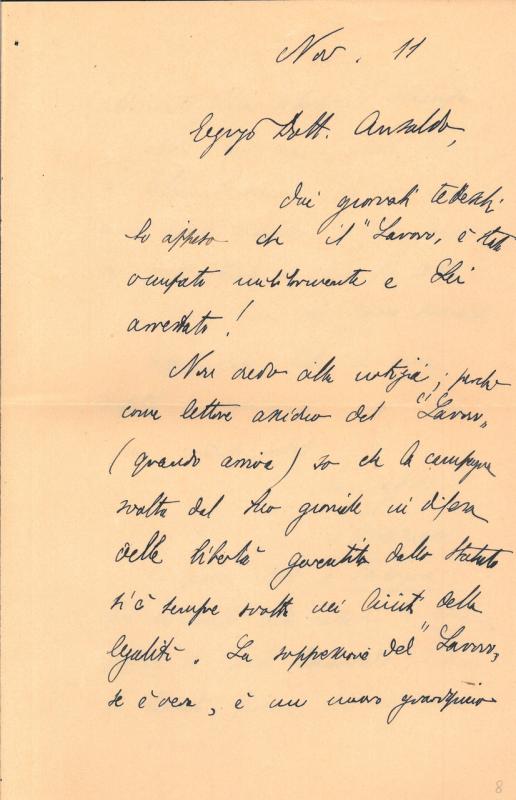 Nov. 11
Egregio Dott. Ansaldo,
Dai giornali tedeschi
ho appreso che il "Lavoro" è stato
occupato militarmente e Lei
arrestato!
Non credo alla notizia; perché
come lettore assiduo del "Lavoro"
(quando arriva) so che la campagna
svolta dal suo giornale in difesa
delle libertà garantite dallo Statuto
si è sempre svolta nei limiti della
legalità. La soppressione del "Lavoro",
se è vera, è un nuovo
8